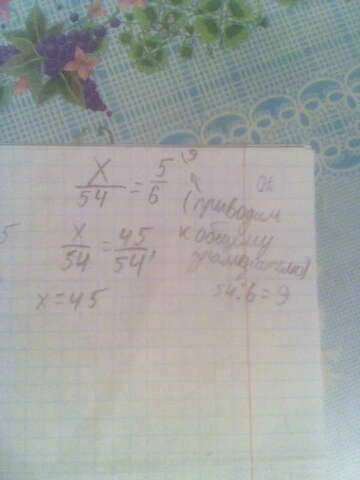 x/54 = 5/6 \9
(приводим
к общему
знаменателю)
x/54 = 45/54,
54:6=9
x=45